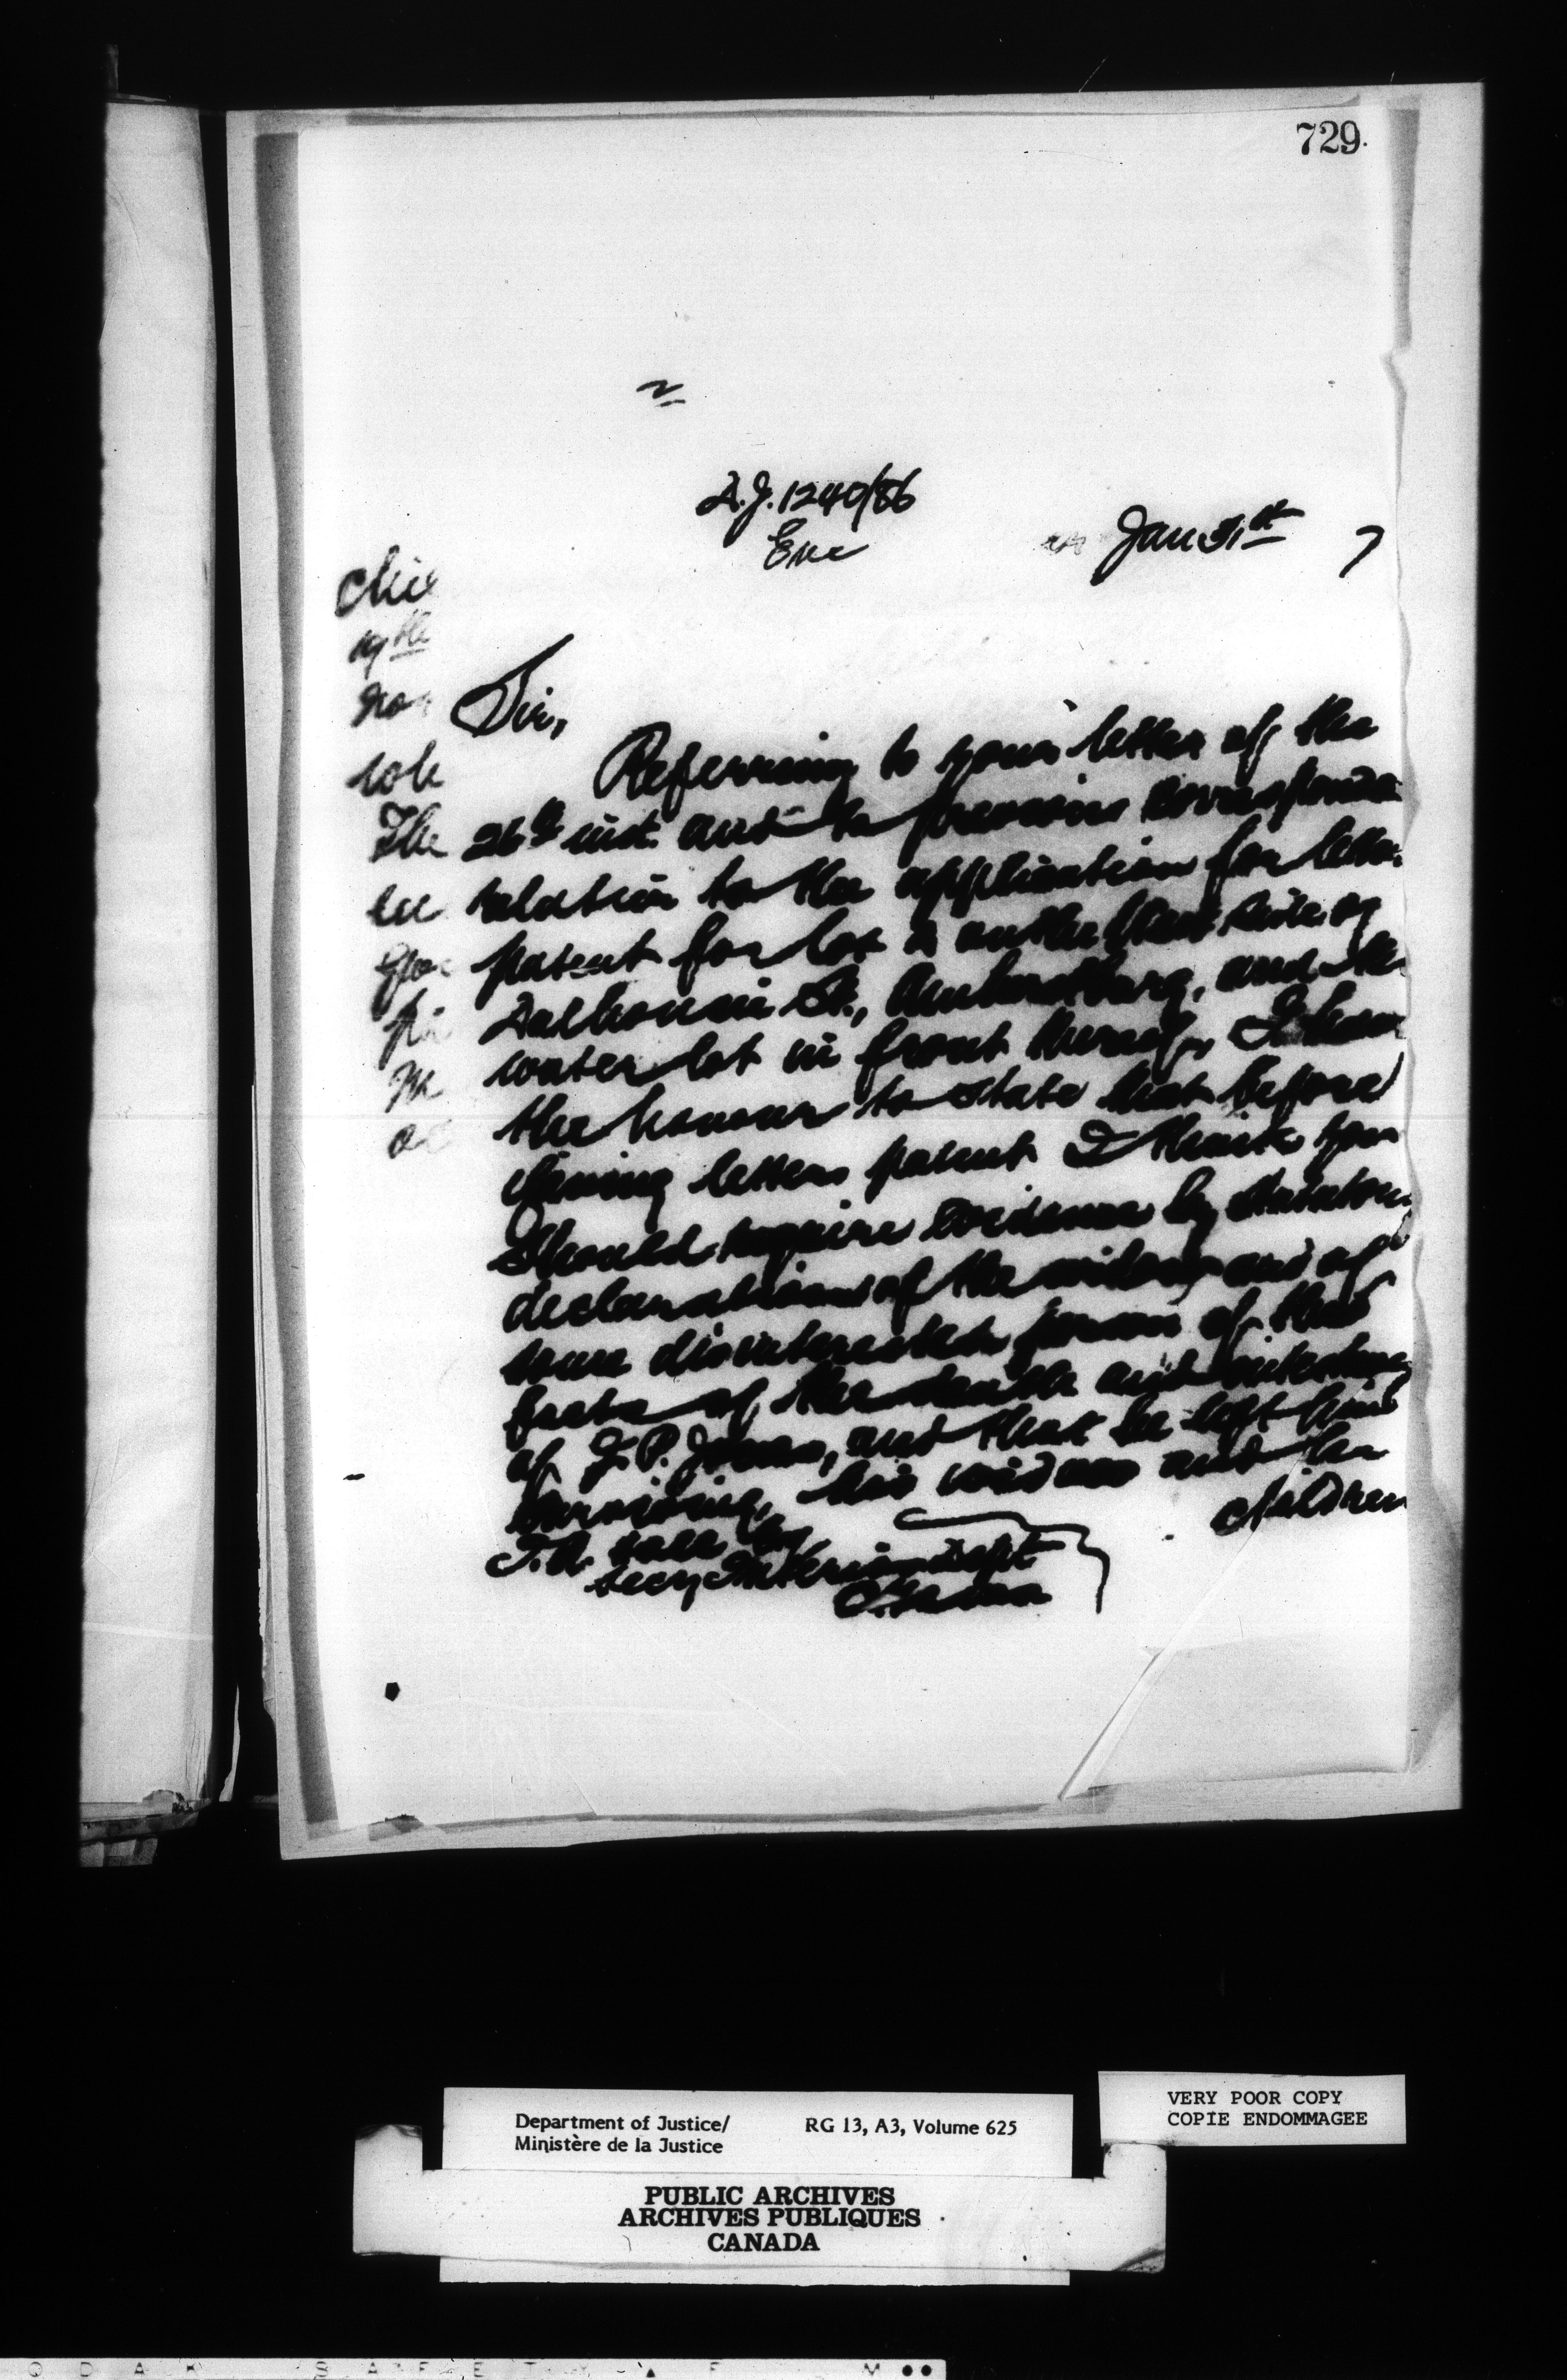 729.
A.J. 1240/86
Enc
Jan 31st 7
Chie
19th
no
The
Sir,
Referring to your letter of the
26th inst. and to previous corresponde
relation to the application for letter
patent for lot 2 on the West side of
Dalhousie St., Amherstburg, and the
water lot in front thereof, I have
the honour to state that before
issuing letters patent I think you
should require evidence by statutory
declarations of the widow and of
some disinterested person of the
facts of the death and intestacy
of J. P. Jones, and that he left him
surviving, his widow and ten
children
T.A. Hall Esq
Secy Interior Dept
Ottawa
Department of Justice/
Ministère de la Justice
RG 13, A3, Volume 625
VERY POOR COPY
COPIE ENDOMMAGEE
PUBLIC ARCHIVES
ARCHIVES PUBLIQUES
CANADA